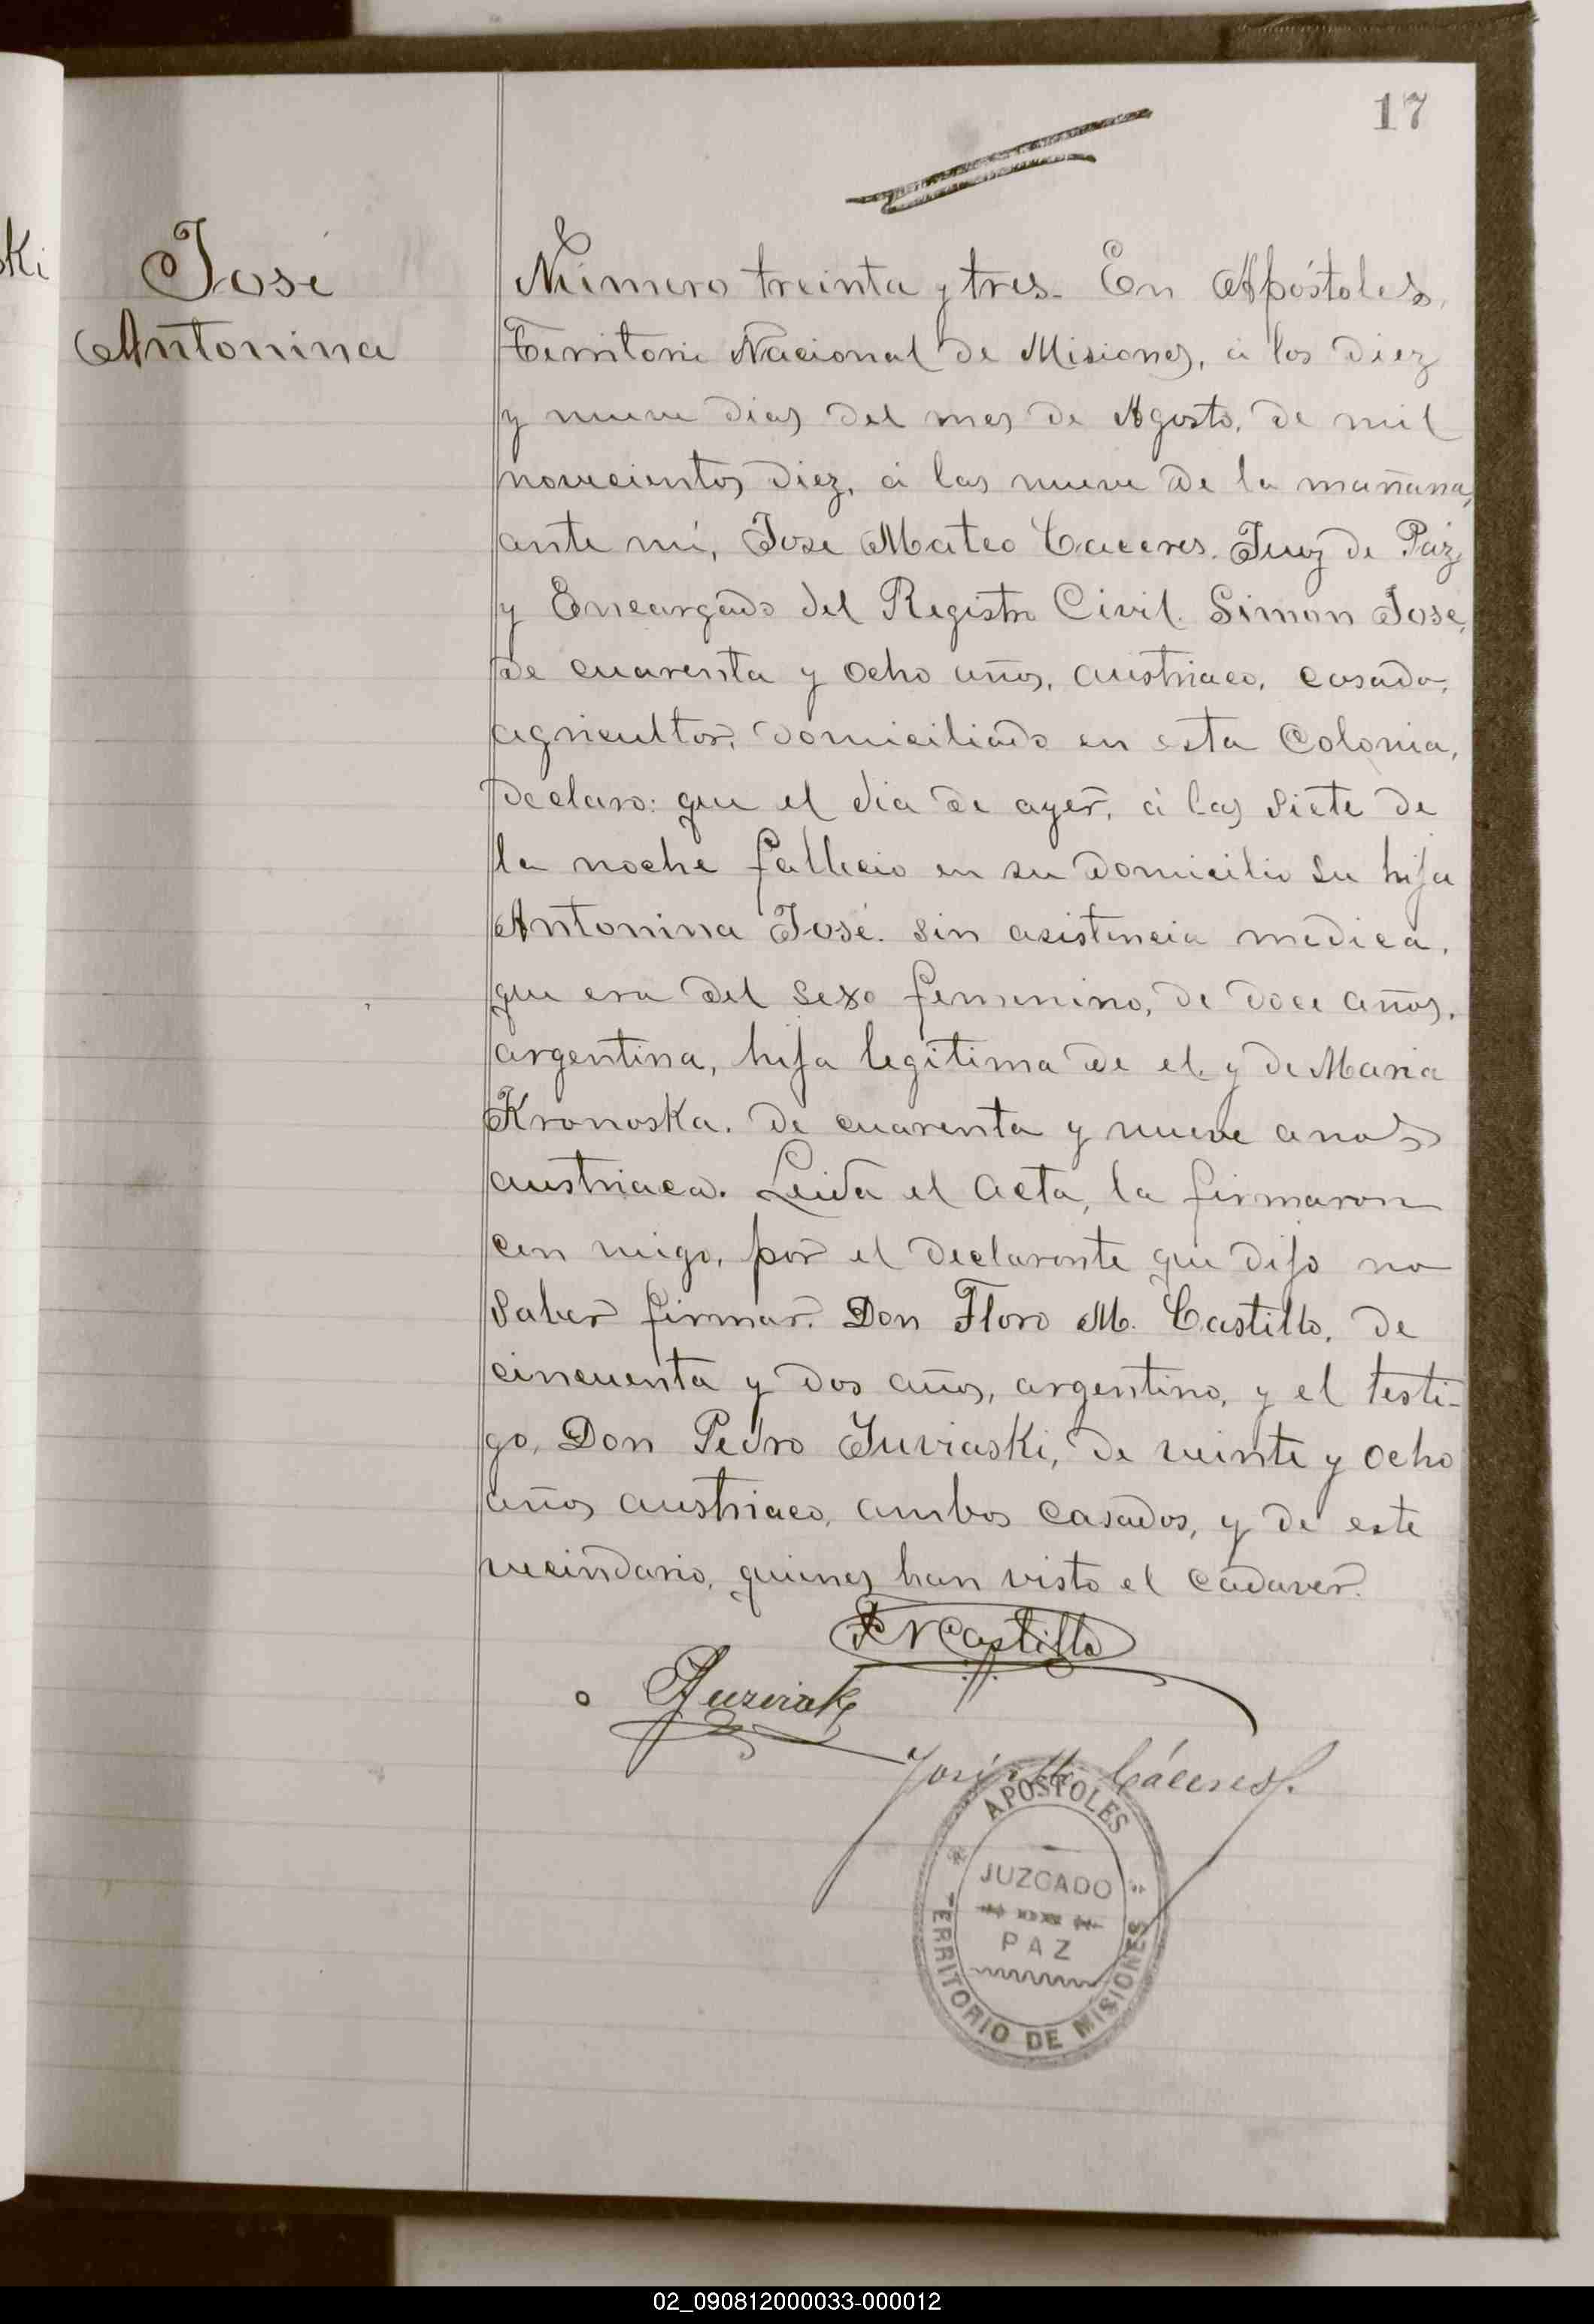 17
ki
José
Antonina
Número treinta y tres. En Apóstoles,
Territorio Nacional de Misiones, á los diez
y nueve dias del mes de Agosto, de mil
novecientos diez, á las nueve de la mañana,
ante mi, Jose Mateo Caceres. Juez de Paz
y Encargado del Registro Civil. Simon José,
de cuarenta y ocho años, austriaco, casado,
agricultor, domiciliado en esta Colonia,
declaro: que el dia de ayer, á las siete de
la noche fallecio en su domicilio su hija
Antonina José. sin asistencia medica,
que era del sexo femenino, de doce años,
argentina, hija legitima de el y de Maria
Kronoska. de cuarenta y nueve anos
austriaca. Leida el acta, la firmaron
con migo, por el declarante que dijo no
saber firmar. Don Floro M. Castillo, de
cincuenta y dos años, argentino, y el testi-
go, Don Pedro Juviaski, de veinte y ocho
años austriaco, ambos casados, y de este
vecindario, quienes han visto el cadaver.
Castillo
José M. Cáceres
APOSTOLES
JUZGADO
PAZ
TERRITORIO DE MISIONES
02_090812000033-000012